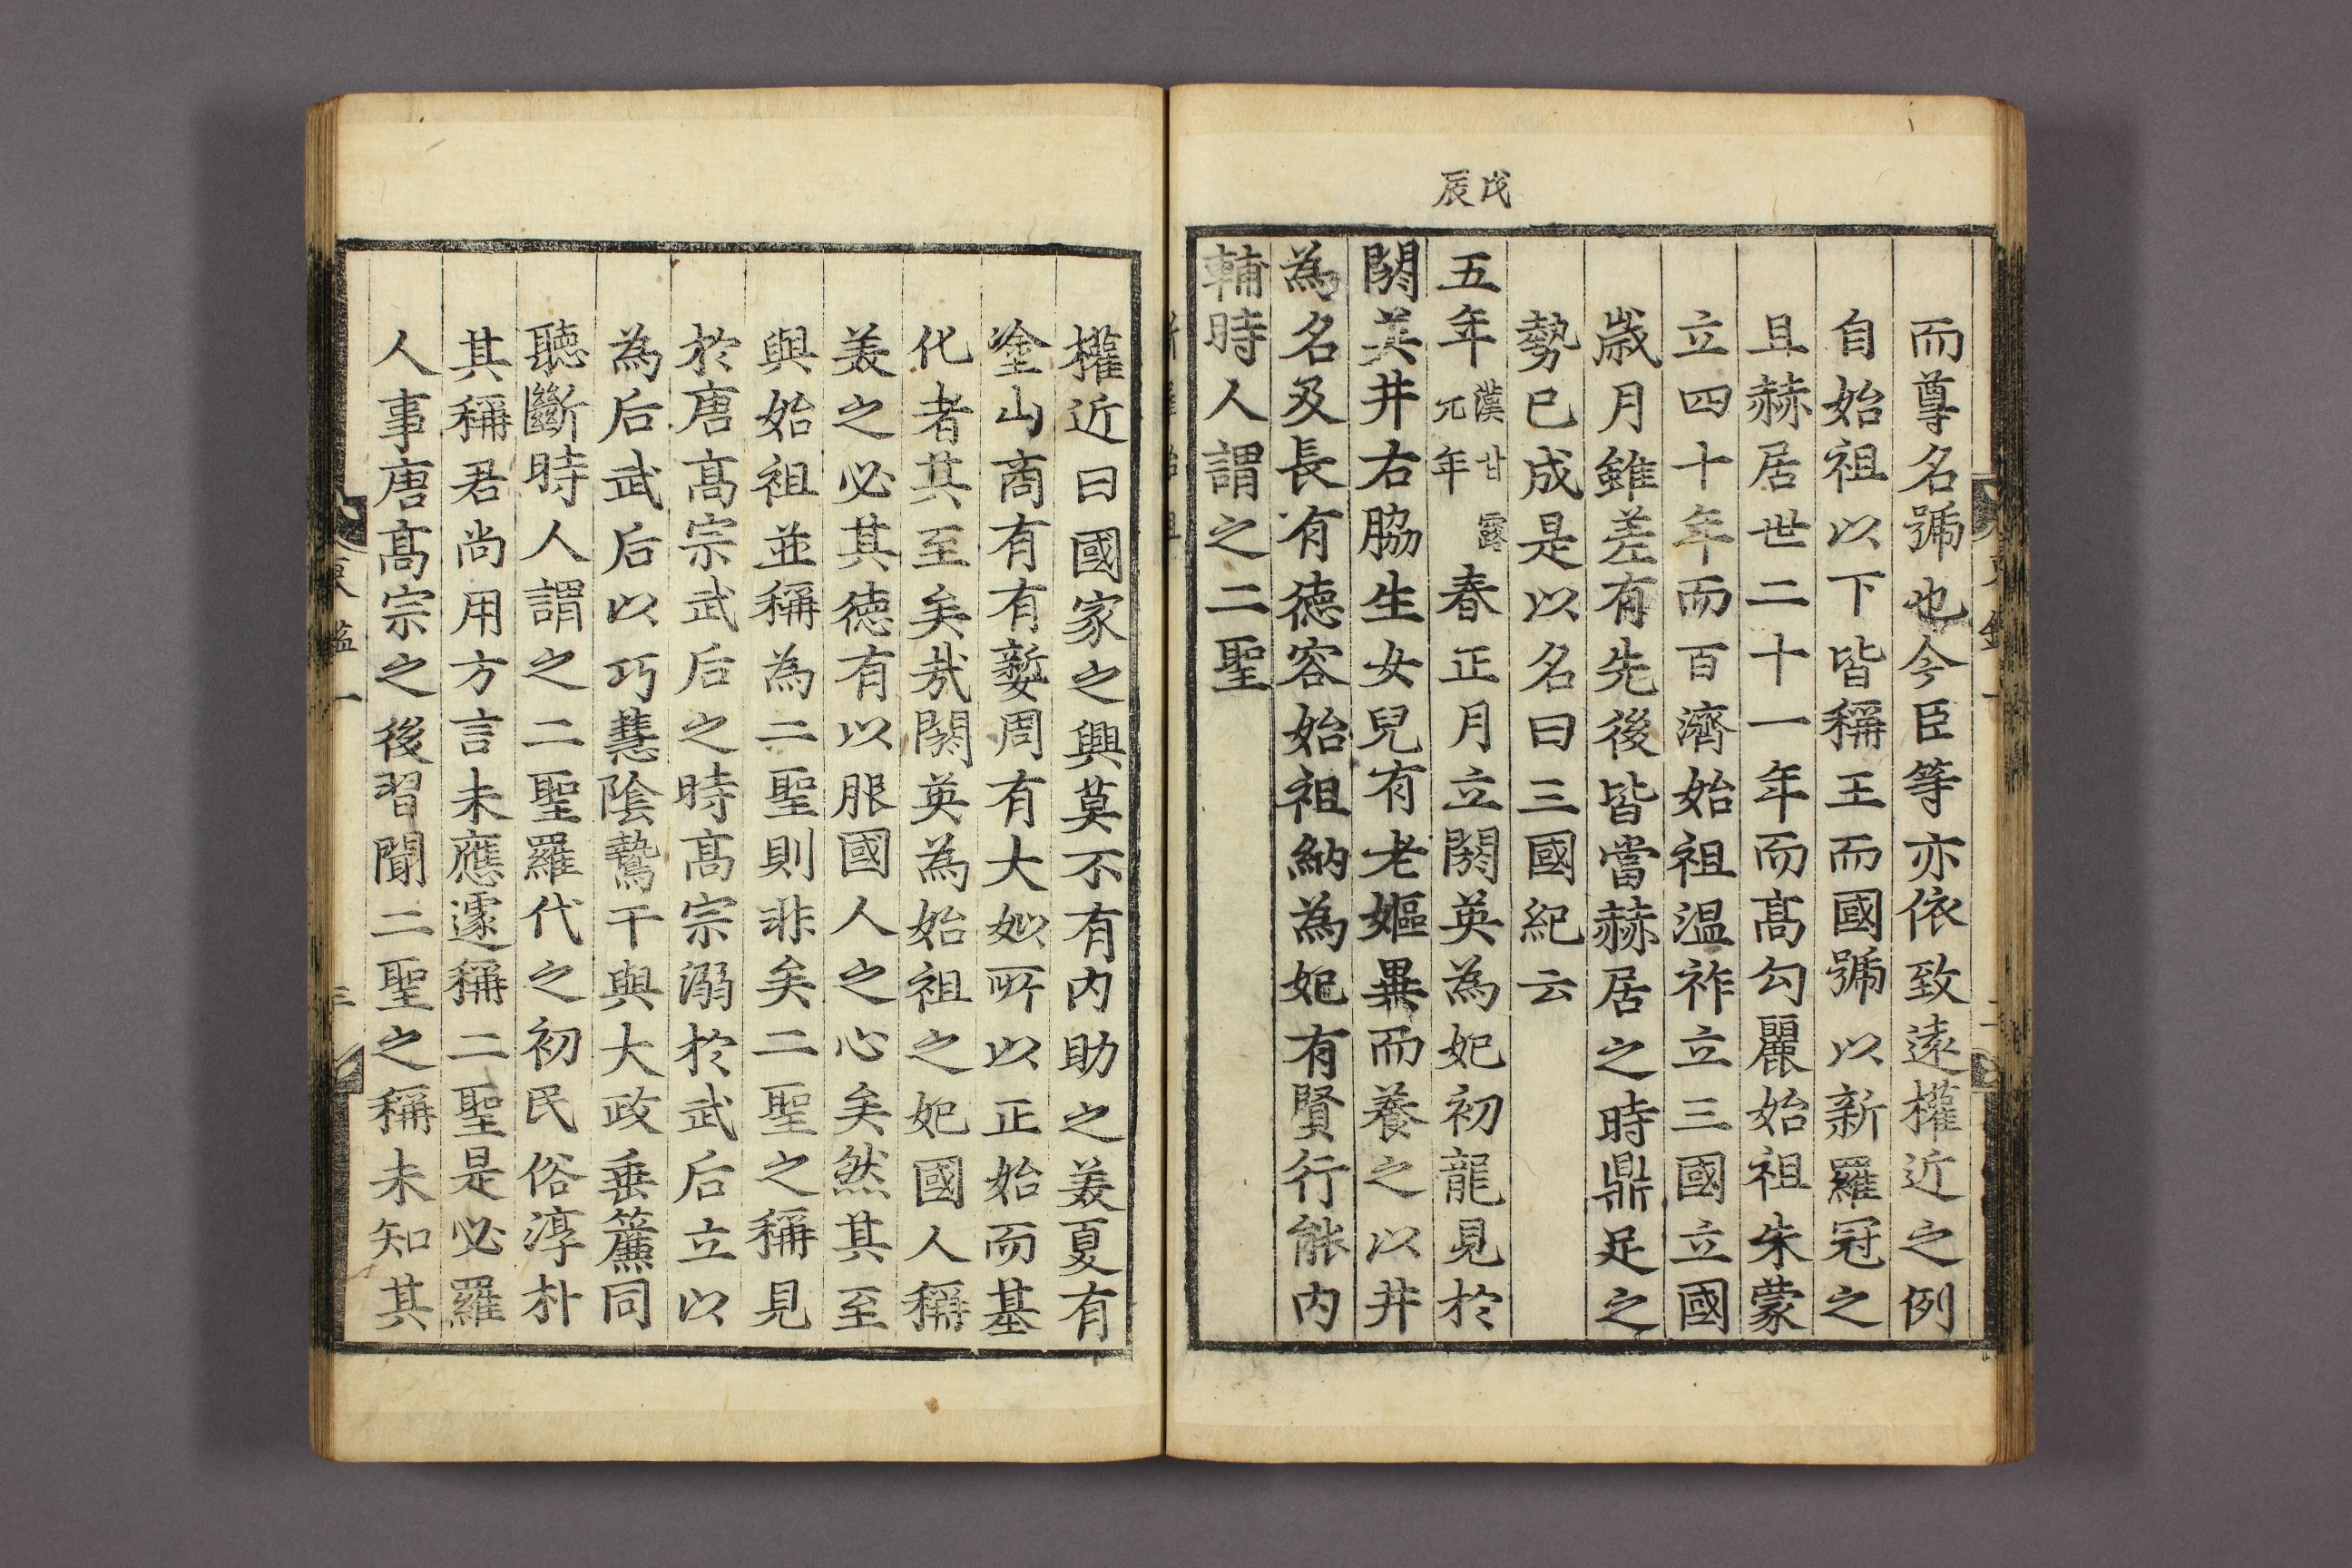 戊辰
而尊名號也今臣等亦依致遠權近之例
自始祖以下皆稱王而國號以新羅冠之
且赫居世二十一年而高勾麗始祖朱蒙
立四十年而百濟始祖温祚立三國立國
歲月雖差有先後皆當赫居之時鼎足之
勢已成是以名曰三國紀云
五年漢甘露元年春正月立閼英為妃初龍見於
閼英井右脇生女兒有老嫗異而養之以井
為名及長有德容始祖納為妃有賢行能內
輔時人謂之二聖
權近曰國家之興莫不有內助之美夏有
塗山商有有㜪周有大姒所以正始而基
化者其至矣哉閼英為始祖之妃國人稱
美之必其德有以服國人之心矣然其至
與始祖並稱為二聖則非矣二聖之稱見
於唐高宗武后之時高宗溺於武后立以
為后武后以巧慧陰鷙干與大政垂簾同
聽斷時人謂之二聖羅代之初民俗淳朴
其稱君尚用方言未應遽稱二聖是必羅
人事唐高宗之後習聞二聖之稱未知其